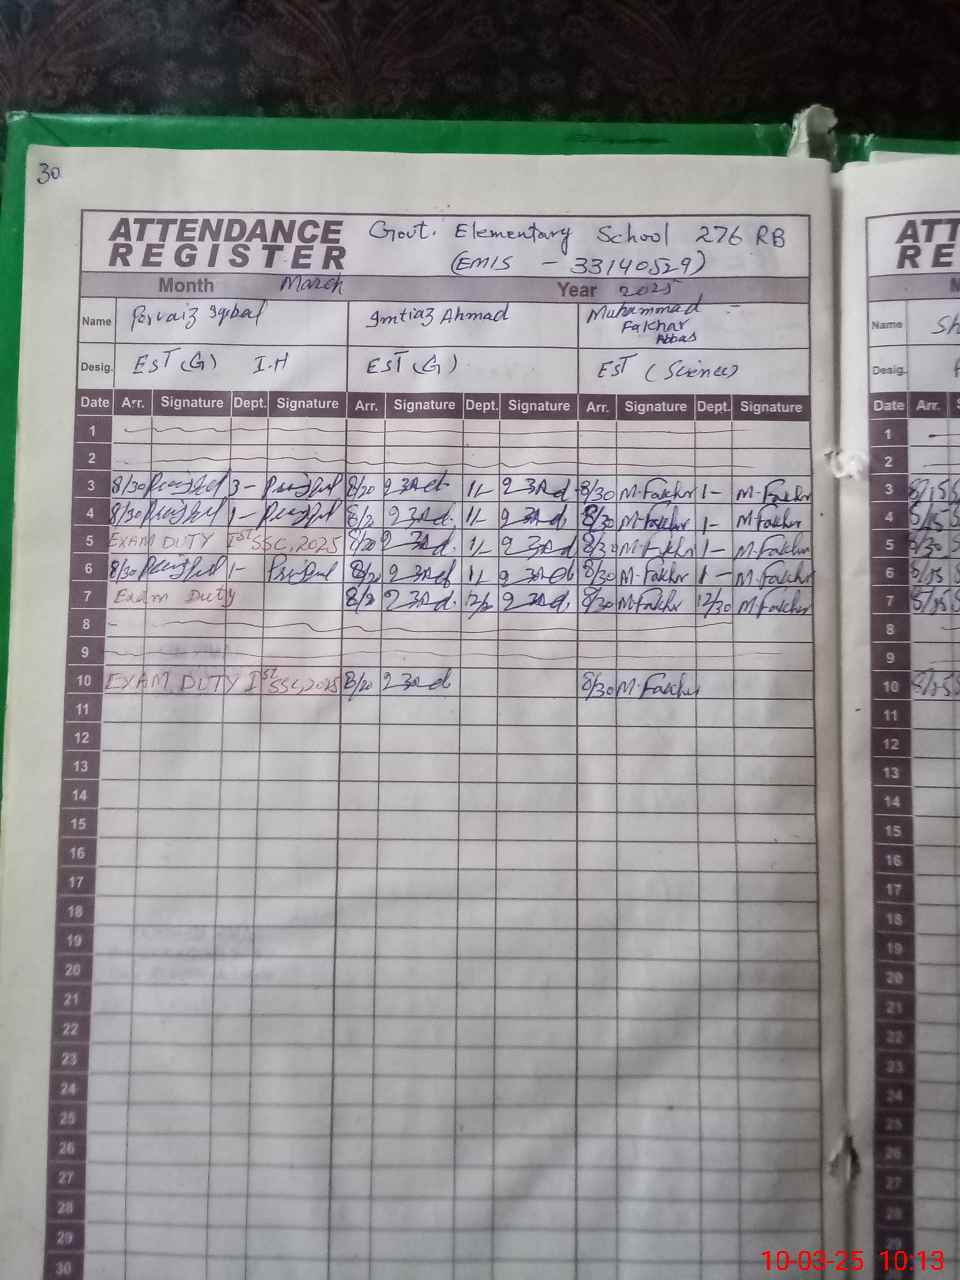 30
ATTENDANCE Govt. Elementary School 276 RB
REGISTER (EMIS - 33140529)
Month March Year 2025
Name Pervaiz Iqbal Imtiaz Ahmad Muhammad Fakhar Abbas
Desig. EST (G) I.H EST (G) EST (Science)
Date Arr. Signature Dept. Signature Arr. Signature Dept. Signature Arr. Signature Dept. Signature
1
2
3 8/30 8/20 1/- 8/30 M.Fakhr 1- M.Fakhr
4 8/30 1- 1/- 8/30 M.Fakhr 1- M.Fakhr
5 EXAM DUTY Ist SSC, 2025 8/20 1/- 8/30 M.Fakhr 1- M.Fakhr
6 8/30 1- 8/20 8/30 M.Fakhr 1- M.Fakhr
7 Exam Duty 8/30 M.Fakhr 12/30 M.Fakhr
8
9
10 EXAM DUTY Ist SSC, 2025 8/20 8/30 M.Fakhr
11
12
13
14
15
16
17
18
19
20
21
22
23
24
25
26
27
28
29
30
ATT
RE
Name Sh
Desig.
Date Arr.
1
2
3 8/15
4 8/15
5 8/30
6 8/15
7 8/15
8
9
10 8/25
11
12
13
14
15
16
17
18
19
20
21
22
23
24
25
26
27
28
29
10-03-25 10:13